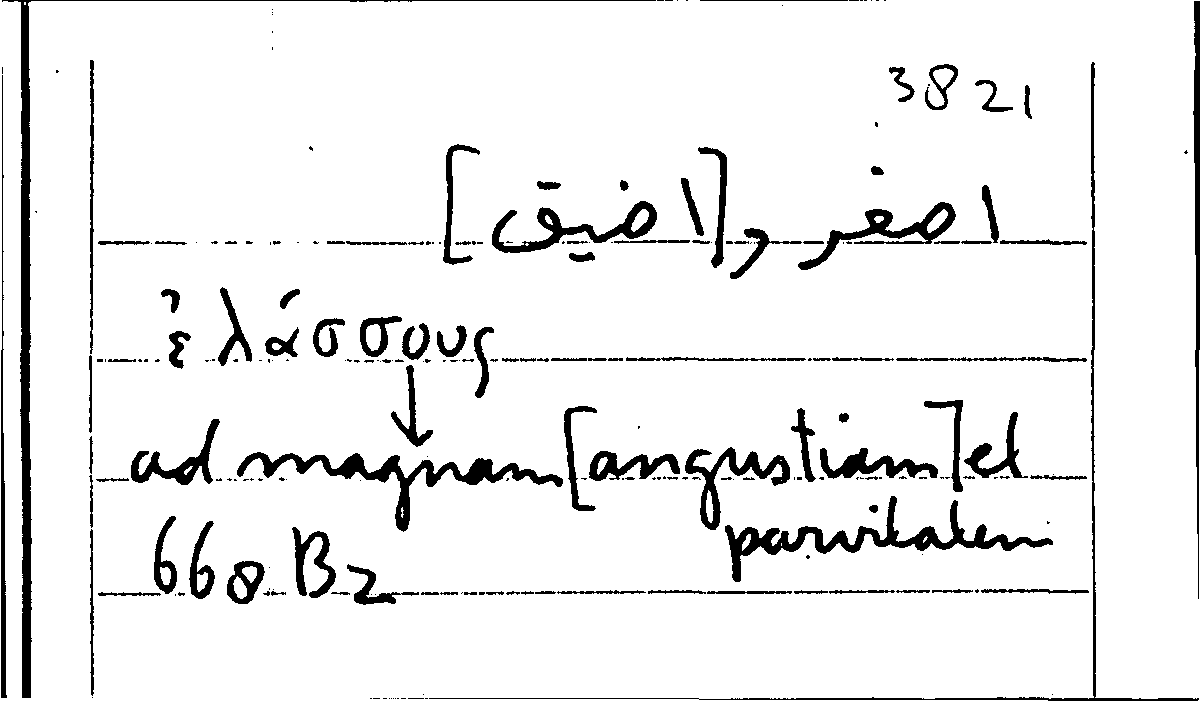 3821
اصغر و[اضيق]
ἐλάσσους
ad magnam [angustiam] et
parvitatem
668 B2